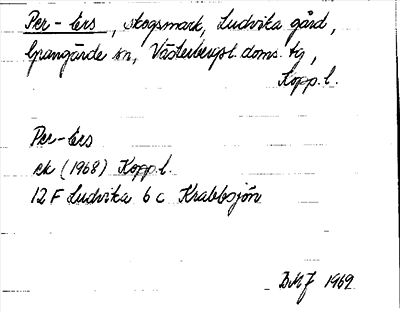 Per-Ers, skogsmark, Ludvika gård,
Grangärde sn, Västerbergsl. doms. tg,
Kopp. l.
Per-Ers
ek (1968) Kopp. l.
12 F Ludvika 6 c Krabbsjön
BMJ 1969